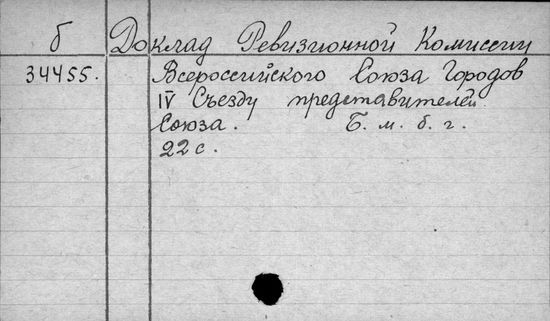 б Доклад Ревизионной Комиссии
34455. Всероссийского Союза Городов
IV Съезду представителей
Союза. Б. м. б. г.
22 с.